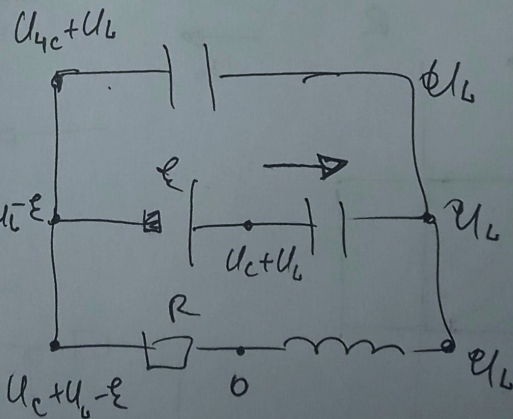 U₄c+U_L
U_L
ℰ
-ℰ
U_L
Uc+U_L
R
Uc+U_L-ℰ
0
U_L